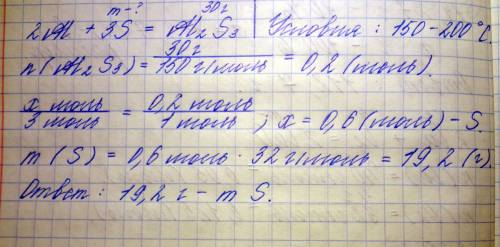 m-? 30г
2Al + 3S = Al2S3 | Условия: 150-200°C.
n(Al2S3) = 30г / 150 г/моль = 0,2 (моль).
x моль / 3 моль = 0,2 моль / 1 моль ; x = 0,6 (моль) - S.
m(S) = 0,6 моль · 32 г/моль = 19,2 (г).
Ответ: 19,2 г - m S.